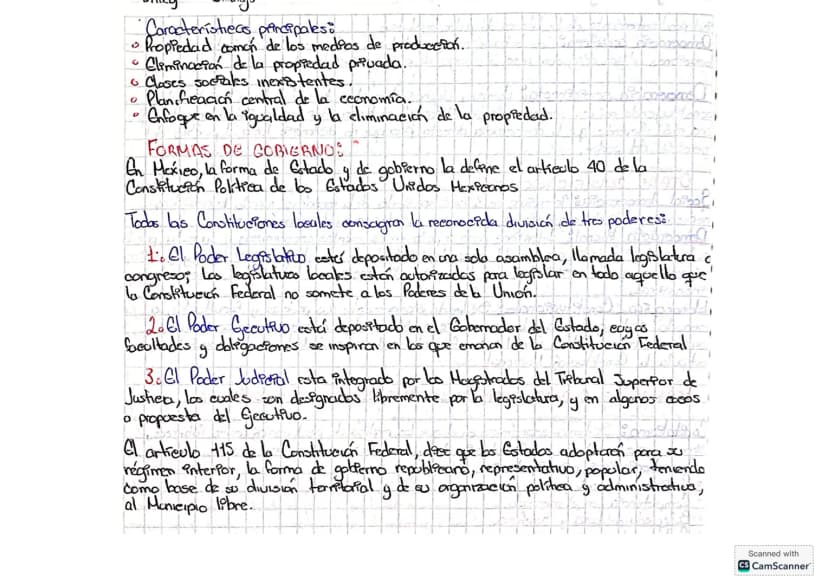 Características principales:
• Propiedad común de los medios de producción.
• Eliminación de la propiedad privada.
• Clases sociales inexistentes.
• Planificación central de la economía.
• Enfoque en la igualdad y la eliminación de la propiedad.
FORMAS DE GOBIERNO:
En México, la forma de Estado y de gobierno la define el artículo 40 de la
Constitución Política de los Estados Unidos Mexicanos
Todas las Constituciones locales consagran la reconocida división de tres poderes:
1. El Poder Legislativo está depositado en una sola asamblea, llamada legislatura o
congreso; Las legislaturas locales están autorizadas para legislar en todo aquello que
la Constitución Federal no somete a los Poderes de la Unión.
2. El Poder Ejecutivo está depositado en el Gobernador del Estado, cuyas
facultades y obligaciones se inspiran en las que emanan de la Constitución Federal
3. El Poder Judicial esta integrado por los Magistrados del Tribunal Superior de
Justicia, los cuales son designados libremente por la legislatura, y en algunos casos
a propuesta del Ejecutivo.
El artículo 115 de la Constitución Federal, dice que los Estados adoptarán para su
régimen interior, la forma de gobierno republicano, representativo, popular, teniendo
como base de su división territorial y de su organización política y administrativa,
al Municipio libre.
Scanned with
CS CamScanner